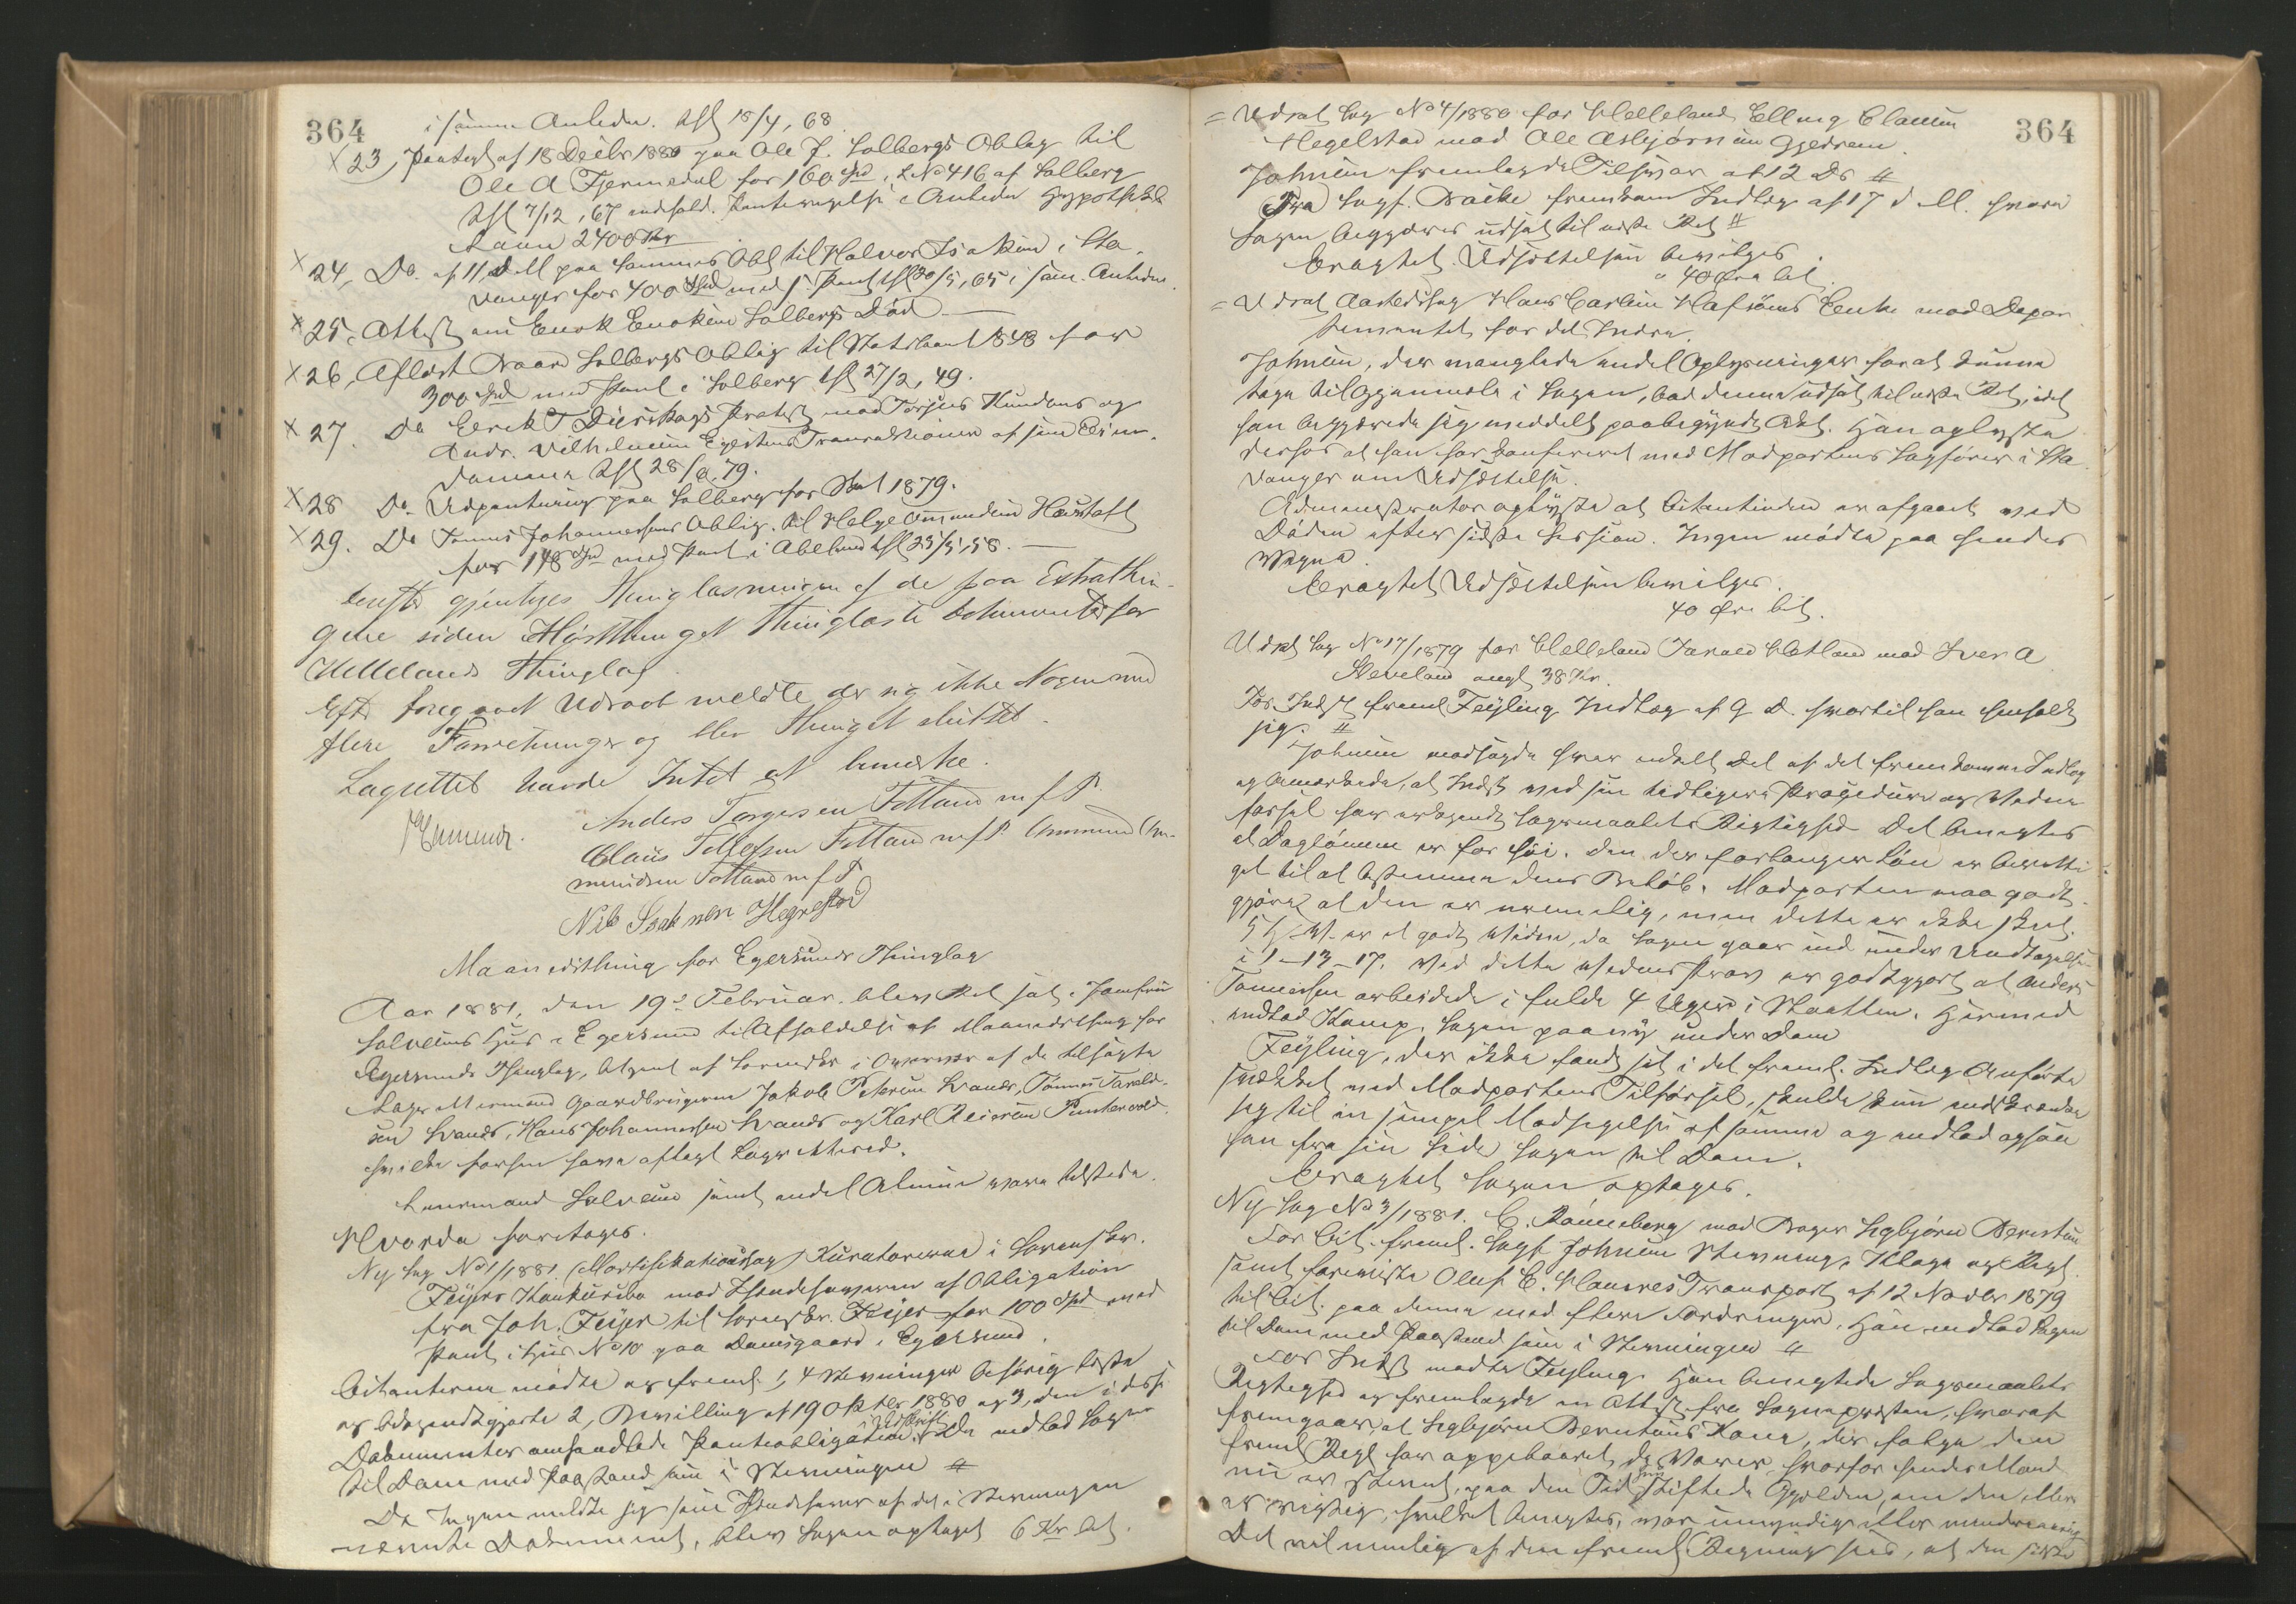 364
i samme Anledn. tgl 18/4, 68
X 23, Pantegl af 18 Decbr 1880 paa Ole J. Solbergs Oblig til
Ole A Tjermedal for 160 Spd, L No 416 af Solberg
tgl 7/12, 67 indehold. Panteregelse i Anledn Hypothekbk
Laan 2400 Kr
X 24, Do. af 11 d M paa sammes Obl til Halvor Isaksen i Sta-
vanger for 400 Spd med 1 Pant tgl 20/5, 65 i sam. Anledn.
X 25, Attest om Enok Enoksen Solbergs Død —
X 26, Aflæst Svend Solbergs Oblig til Statskas 1848 for
300 Spd med Pant i Solberg tgl 27/2, 49.
X 27. Do Eerik T Dirskogs Protest mod Torjus Knudsens og
Andr. Vilhelmsen Egersunds Transaktioner af sine Eien-
domme tgl 28/8, 79.
X 28 Do. Udpantning paa Solberg for Skat 1879.
X 29. Do Tønnes Johannesens Oblig. til Helge Ommundsen Haustoft
for 148 Spd med Pant i Abeland tgl 25/5, 58. —
Derefter gjentoges Thinglæsningen af de paa Extrathin-
gene siden Høstthinget thinglæste Dokumenter for
Hellelands Thinglag
Eft foregaaet Udraab meldte der sig ikke Nogen med
flere Forretninger og blev Thinget sluttet.
Lagrettet havde Intet at bemerke.
Anders Torgersen Tetland m f P.
Claus Tollefsen Tetland m f P. Ommund Om-
mundsen Tetland m f P
Nils Isaksen Hegrestad
Maanedsthing for Egersunds Thinglag
Aar 1881, den 19de Februar blev Ret sat i Jomfru
Salvesens Hus i Egersund til Afholdelse af Maanedsthing for
Egersunds Thinglag, betjent af Sorenskr i Overvær af de tilsagte
Lagrettesmænd Gaardbrugerne Jakob Petersen Svanes, Tønnes Tarald-
sen Svanes, Hans Johannesen Svanes og Karl Reiersen Puntervold.
hvilke forhen have aflagt Lagretteed.
Lensmand Salvesen samt endel Almue vare tilstede.
Hvorda foretoges.
Ny Sag No 1/1881 (Mortifikationssag) Kuratorerne i Sorenskr.
Feyers Konkursbo mod Ihændehaveren af Obligation
fra Joh. Feyer til Sorenskr. Feyer for 100 Spd med
Pant i Hus No 10 paa Damsgaard i Egersund.
Citanterne mødte og freml. 1, 4 Stevninger behørig læste
og bekjendtgjorte 2, Bevilling af 19 Oktbr 1880 og 3, den i disse
Dokumenter omhandlede Panteobligation i Udskrift. De indlod Sagen
til Dom med Paastand som i Stevningen #
Da Ingen meldte sig som Ihændehaver af det i Stevningen
nævnte Dokument, blev Sagen optaget 6 Kr bet.
364
= Udsat Sag No 4/1880 for Helleland Elling Clausen
Hegelstad mod Ole Asbjørnsen Gjedrem
Johnsen fremlagde Tilsvar af 12 Ds #
Fra Sagf. Backe fremkom Indlæg af 17 d M. hvori
Sagen begjæres udsat til næste Ret #
Eragtet Udsættelsen bevilges.
40 Øre bet.
= Udsat Aastedssag Hans Carlsen Hafsøens Enke mod Depar
tementet for det Indre.
Johnsen, der manglede endel Oplysninger for at kunne
tage til Gjenmæle i Sagen, bad denne udsat til næste Ret, idet
han begjærede sig meddelt paabegyndt Akt. Han oplyste
derhos at han har konfereret med Modpartens Sagfører i Sta
vanger om Udsættelse.
Administrator oplyste at Citantinden er afgaaet ved
Døden efter sidste Session. Ingen mødte paa hendes
Vegne.
Eragtet Udsættelsen bevilges.
40 Øre bet.
Udsat Sag No 17/1879 for Helleland Tarald Hetland mod Iver A
Steneland angl 38 Kr.
For Indst freml Feyling Indlæg af 9 D. hvortil han henholdt
sig. #
Johnsen modsagde hver enkelt Del af det fremkomne Indlæg
og bemærkede, at Indst. ved sin tidligere Procedure og Vidne
førsel har erkjendt Sagsmaalets Rigtighed. Det benegtes
at Daglønnen er for høi. Den der forlanger Løn er beretti-
get til at bestemme dens Beløb. Modparten maa godt-
gjøre at den er urimelig, men dette er ikke skeet.
er et godt Vidne, da Sagen gaar ind under Undtagelse
i 1–13–17. Ved dette Vidnes Prov er godtgjort at Anders
Tønnesen arbeidede i fulde 4 Uger i Slaatten. Hermed
indlod Komp. Sagen paany under Dom
Feyling, der ikke fandt sig i det freml. Indlæg Anførte
svækket ved Modpartens Tilførsel, skulde kun indskrænke
sig til en simpel Modsigelse af samme og indlod ogsaa
han fra sin Side Sagen til Dom.
Eragtet Sagen optages.
Ny Sag No 3/1881. C. Rønneberg mod Bager Segbjørn Berentsen
For Cit. freml. Sagf. Johnsen Stevning, Klage og Regl.
samt foreviste Oluf C. Hansens Transport af 12 Novbr 1879
til Cit. paa denne med flere Fordringer. Han indlod Sagen
til Dom med Paastand som i Stevningen #
For Indst mødte Feyling. Han benegtede Sagsmaalets
Rigtighed og fremlagde en Attest fra Sognepresten, hvoraf
fremgaar at Segbjørn Berentsens Kone, der ifølge den
freml Regl har oppebaaret de Varer, hvorfor hendes Mand
nu er stevnet, paa den Tid hun stiftede Gjælden, om den ellers
er rigtig, hvilket benegtes, var umyndig eller mindreaarig
Det vil nemlig af den freml. Regning sees, at den sidste